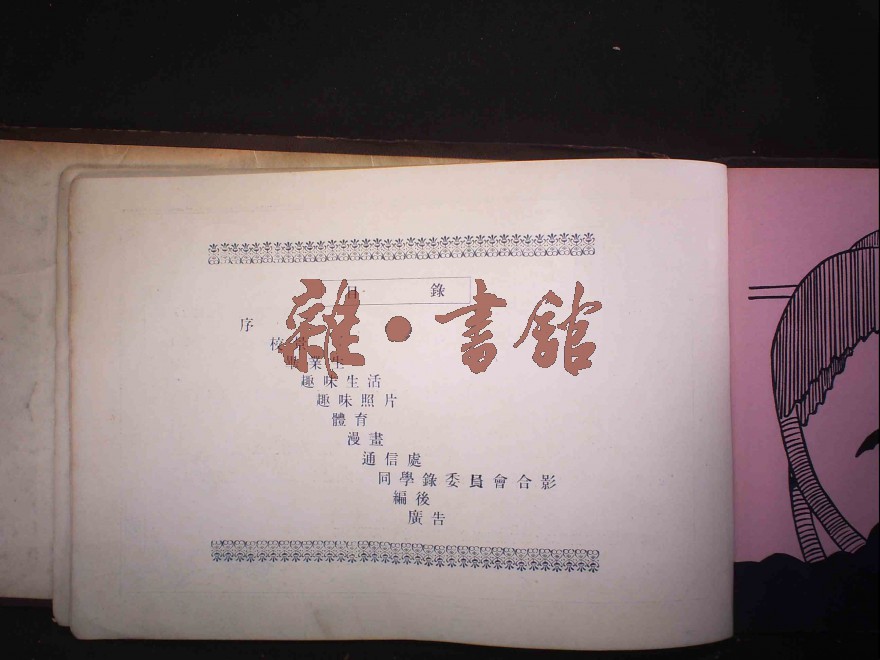 目 錄
雜·書館
序
校
畢業生
趣味生活
趣味照片
體育
漫畫
通信處
同學錄委員會合影
編後
廣告